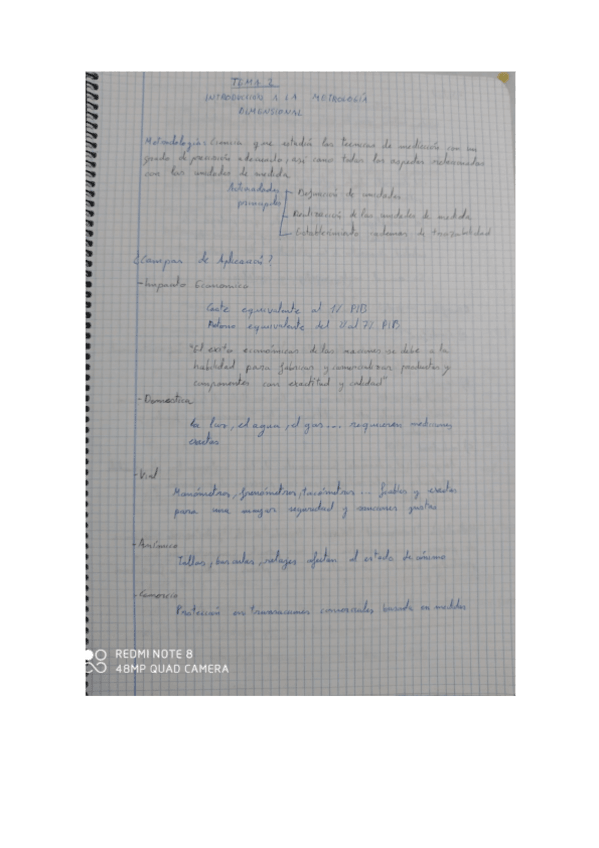 TEMA 2
INTRODUCCION A LA METROLOGÍA
DIMENSIONAL
Metrodología: Ciencia que estudia las tecnicas de medición con un
grado de precisión adecuado, así como todos los aspectos relacionados
con las unidades de medida
Actividades
principales
- Definición de unidades
- Realización de las unidades de medida
- Establecimiento cadenas de trazabilidad
¿Campos de Aplicación?
- Impacto Economico
Coste equivalente al 1% PIB
Retorno equivalente del al 7% PIB
"El exito económico de las naciones se debe a la
habilidad para fabricar y comercializar productos y
componentes con exactitud y calidad"
- Domestica
La luz, el agua, el gas... requieren mediciones
exactas
- Vial
Manómetros, frenómetros, tacómetros... fiables y exactos
para una mayor seguridad y sanciones justas
- Anímico
Tallas, basculas, relojes afectan al estado de ánimo
- Comercio
Protección en transacciones comerciales basada en medidas
REDMI NOTE 8
48MP QUAD CAMERA